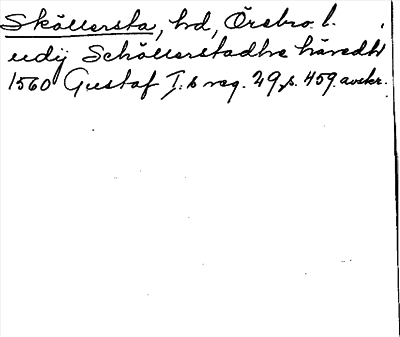 Sköllersta, hd, Örebro l.
udij Schöllerstadhe häredh
1560 Gustaf I:s reg. 29, s. 459. avskr.